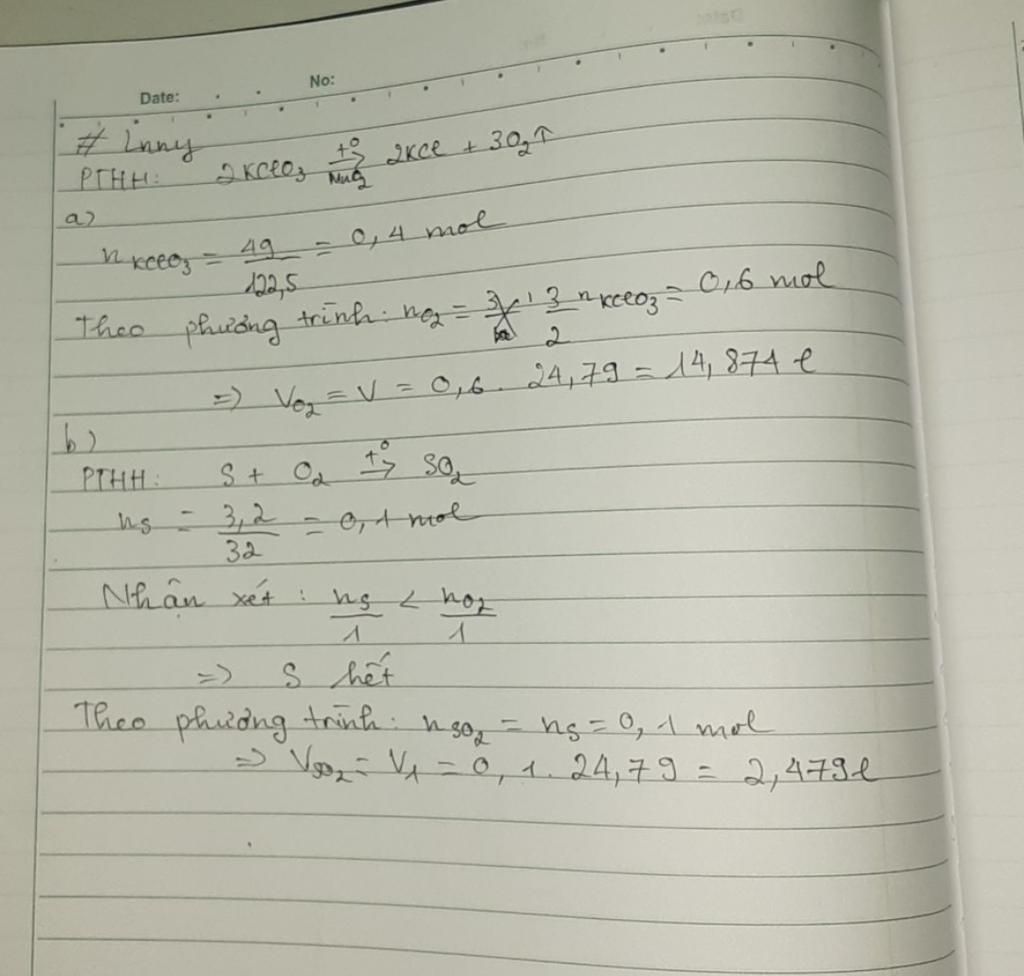 Date: No:
# Lnny
PTHH: 2KClO₃ t° → MnO₂ 2KCl + 3O₂↑
a)
n KClO₃ = 49/122,5 = 0,4 mol
Theo phương trình: nO₂ = 3/2 n KClO₃ = 0,6 mol
=> VO₂ = V = 0,6 . 24,79 = 14,874 l
b)
PTHH: S + O₂ t° → SO₂
nS = 3,2/32 = 0,1 mol
Nhận xét: nS/1 < nO₂/1
=> S hết
Theo phương trình: nSO₂ = nS = 0,1 mol
=> VSO₂ = V₁ = 0,1. 24,79 = 2,479 l